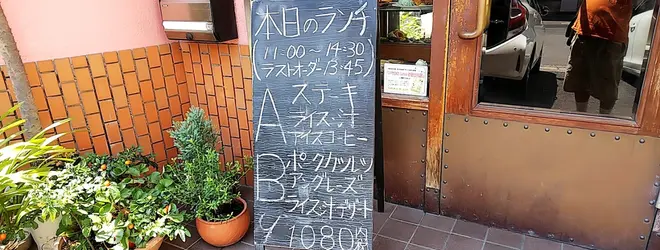 本日のランチ
(11:00〜14:30)
ラストオーダー13:45
A ステーキ
ライス:汁
アイスコーヒー
B ポークカツレツ
ライス:汁デザート
¥1080